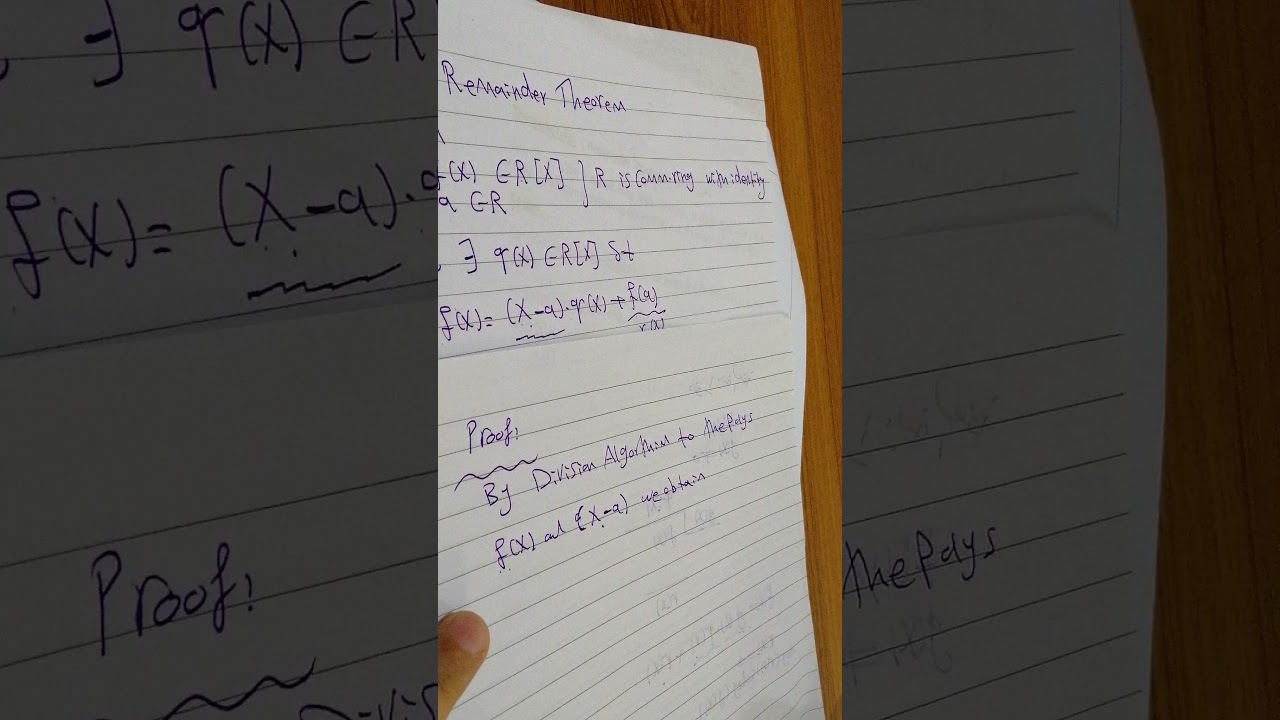 Remainder Theorem
f(X) ∈ R[X] } R is Comm. ring with identity
a ∈ R
, ∃ q(X) ∈ R[X] st
f(X) = (X-a).q(X) + f(a)
r(X)
Proof:
By Division Algorthim to the Polys
f(X) and (X-a) we obtain